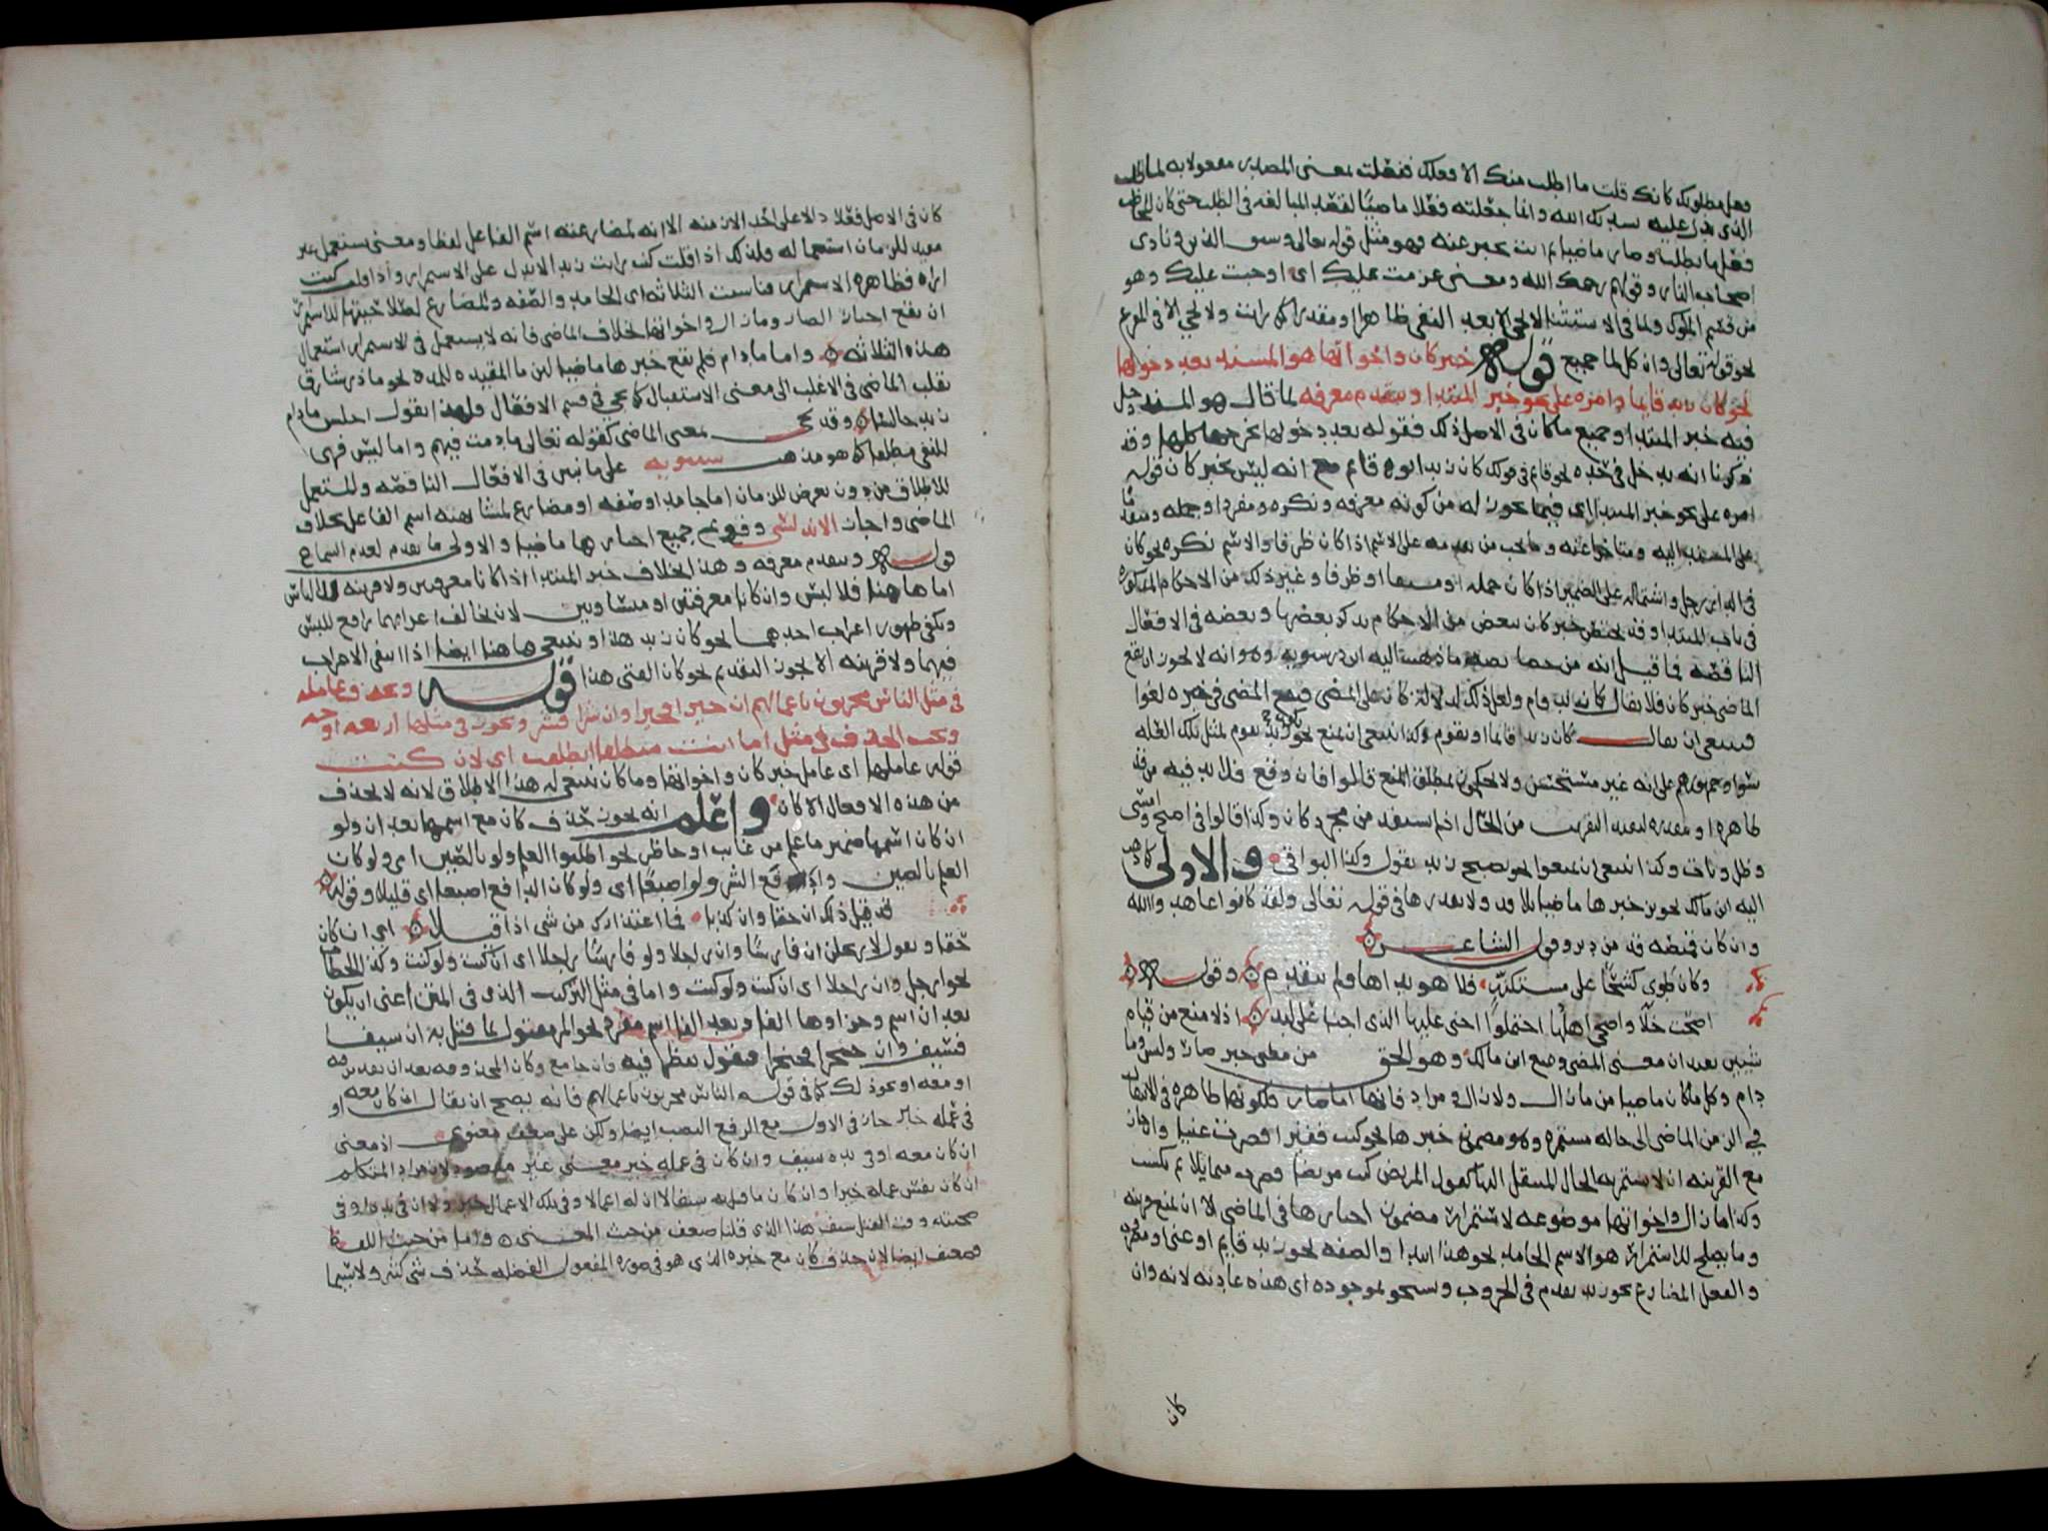 وهل مطلوبك كانك قلت ما اطلب منك الا فعلك ففعلت بمعنى المصدر مفعولا به لما
الذى عليه الله وانما جعلته فعلا ماضيا لقصد المبالغه فى الطلب حتى كان المخاطب
فعل ما تطلبه وصار ماضيا ثم انت تخبر عنه فهو مثل قوله تعالى وسيق الذين ونادى
اصحاب النار وقولهم رحمك الله ومعنى عزمت عليك اى اوجبت عليك وهو
من قسم الملوك ولما فى الاستثنا لا تجى الا بعد النفى ظاهرا ومقدرا كما رايت ولا تجى الا فى المفرغ
نحو قوله تعالى وان كل لما جميع قوله خبر كان واخواتها هو المسند بعد دخولها
نحو كان زيد قايما وامره على نحو خبر المبتدا ويتقدم معرفه لما قال هو المسند دخل
فيه خبر المبتدا وجميع ما كان فى الاصل ذلك فقوله بعد دخولها يخرجها كلها وقد
ذكرنا انه يدخل فى حده نحو قايم فى قولك كان زيد ابوه قايم مع انه ليس بخبر كان قوله
امره على نحو خبر المبتدا اى فيما يجوز له من كونه معرفه ونكره ومفردا وجمله ومتقدما
على المسند اليه ومتاخرا عنه وما يجب من تقدمه على الاسم اذا كان ظرفا والاسم نكره نحو كان
فى الدار رجل واشتماله على الضمير اذا كان جمله او مشتقا او ظرفا وغير ذلك من الاحكام المذكوره
فى باب المبتدا وقد يختص خبر كان ببعض من الاحكام يذكر بعضها وبعضه فى الافعال
الناقصه فما قيل انه من خصايصه ما ذهب اليه ابن درستويه وهو انه لا يجوز ان يقع
الماضى خبر كان فلا يقال كان زيد قام ولعل ذلك لدلالة كان على المضى فيقع المضى فى خبره لغوا
فينبغى ان يقال كان زيد قايما او يقوم وكذا ينبغى ان يمنع نحو يكون زيد يقوم لمثل تلك العله
سوا وجمهورهم على انه غير مستحسن ولا يحكمون بمطلق المنع قالوا فان وقع فلا بد فيه من قد
ظاهره او مقدره لتفيد التقريب من الحال اذ لم يستفد من مجرد كان وكذا قالوا فى اصبح وامسى
وظل وبات وكذا ينبغى ان يمنعوا نحو يصبح زيد يقول وكذا البواقى والاولى كما ذهب
اليه ابن مالك تجويز خبرها ماضيا بلا قد ولا تقديرها فى قوله تعالى ولقد كانوا عاهدوا الله
وان كان قميصه قد من دبر وقول الشاعر
وكان طوى كشحا على مستكنة فلا هو بداها ولم يتقدم وقوله
اضحت خلآ واضحى اهلها احتملوا اخنى عليها الذى اخنا على لبد اذ لا منع من قيام
شيئين يفيدان معنى المضى ومنع ابن مالك وهو الحق من مضى خبر صار وليس وما
دام وكل ما كان ماضيا من ما زال ولا زال ومراد فاتها اما صار فلكونها ظاهره فى الانتقال
فى الزمن الماضى الى حاله مستمره وهو مضمون خبرها نحو كنت فقيرا فصرت غنيا وان جاز
مع القرينه ان لا يستمر به الحال المستقل اليها كقول المريض كنت مريضا فصرت متماثلا ثم نكست
وكذا ما زال واخواتها موضوعه لاستمرار مضمون اخبارها فى الماضى الا ان يمنع قرينه
وما يصلح للاستمرار هو الاسم الجامد نحو هذا اسد والصفه نحو زيد قايم او غنى او
والفعل المضارع نحو زيد يقدم فى الحروب ويسخو بموجوده اى هذه عادته لانه وان
كان
كان فى الاصل فعلا دالا على احد الازمنه الا انه لمضارعته اسم الفاعل لفظا ومعنى يستعمل غير
مفيد للزمان استعماله ولذلك اذا قلت كنت رايت زيد لا تدل على الاستمرار واذا قلت كنت
اراه فظاهره الاستمرار فناسب الثلاثه اى الجامد والصفه والمضارع لصلاحيتها للاستمرار
ان يقع اخبارا لصار وما زال واخواتها بخلاف الماضى فانه لا يستعمل فى الاستمرار استعمال
هذه الثلاثه واما ما دام فلم يقع خبرها ماضيا لان ما المفيده للمده نحو ما ذر شارق
تقلب الماضى فى الاغلب الى معنى الاستقبال كما يجى فى قسم الافعال ولهذا يقول اجلس ما دام
زيد جالسا وقد يجى بمعنى الماضى كقوله تعالى ما دمت فيهم واما ليس فهى
للنفى مطلقا كما هو مذهب سيبويه على ما نبين فى الافعال الناقصه والمستعمل
للاطلاق من دون تعرض للزمان اما جامد او صفه او مضارع لمشابهته اسم الفاعل بخلاف
الماضى واجاز الاندلسى وقوع جميع اخبارها ماضيا والاولى ما تقدم لعدم السماع
قوله ويتقدم معرفه وهذا بخلاف خبر المبتدا اذا كانا معرفتين ولا قرينه للالباس
اما هاهنا فلا لبس وان كانا معرفتين او متساويين لان تخالف اعرابهما رافع للبس
ويكفى ظهور اعراب احدهما نحو كان زيد هذا وينبغى هاهنا ايضا اذا انتفى الاعراب
فيهما ولا قرينه الا يجوز التقديم نحو كان الفتى هذا قوله وحذف عامله
فى مثل الناس مجزيون باعمالهم ان خيرا فخير وان شرا فشر ويجوز فى مثلها اربعه اوجه
ويجب الحذف فى مثل اما انت منطلقا انطلقت اى لان كنت
قوله عاملها اى عامل خبر كان واخواتها وما كان ينبغى له هذا الاطلاق لانه لا يحذف
من هذه الافعال الا كان واعلم انه يجوز حذف كان مع اسمها بعد ان ولو
ان كان اسمها ضمير ما علم من غايب او حاظر نحو اطلبوا العلم ولو بالصين اى ولو كان
العلم بالصين وادفع الشر ولو اصبعا اى ولو كان الدافع اصبعا اى قليلا وقوله
قد قيل ذلك ان حقا وان كذبا فما اعتذارك من شى اذا قيلا اى ان كان
حقا ويقول لارحلن ان فارسا وان راجلا ولو فارسا راجلا اى ان كنت ولو كنت وكذا الخطاب
نحو ارحل وان راجلا اى ان كنت ولو كنت واما فى مثل التركيب الذى فى المتن اعنى ان يكون
بعد ان اسم وجزاوها الفا وبعد الفا اسم مفرد نحو المر مقتول بما قتل به ان سيفا
فسيف وان خنجرا فخنجر فنقول ينظر فيه فان جامع وكان المحذوفه بعد ان تقدر فيه
او معه او نحو ذلك كما فى قوله الناس مجزيون باعمالهم فانه يصح ان يقال ان كان معه او
فى عمله خير جاز فى الاول مع الرفع النصب ايضا ولكن على ضعف معنوى اذ معنى
ان كان معه او فى يده سيف وان كان فى عمله خير معنى غير مقصود لان مراد المتكلم
ان كان نفس عمله خيرا وان كان ما قتل به سيفا لا ان له اعمالا وفى تلك الاعمال خير ولا ان فى يده او فى
صحبته وقت القتل سيف هذا الذى قلنا ضعف من حيث المعنى واما من حيث اللفظ
فضعف ايضا لان حذف كان مع خبره الذى هو فى صورة المفعول الفضله حذف شى كثير ولا سيما